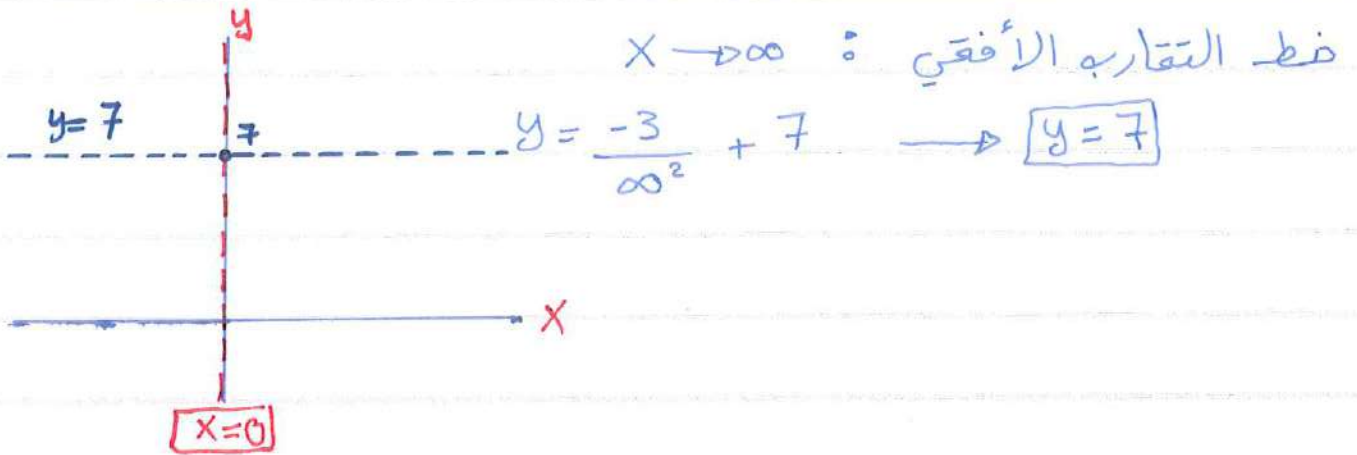 y
خط التقارب الأفقي : X → ∞
y = 7
7
y = -3/∞² + 7 → y = 7
X
X=0